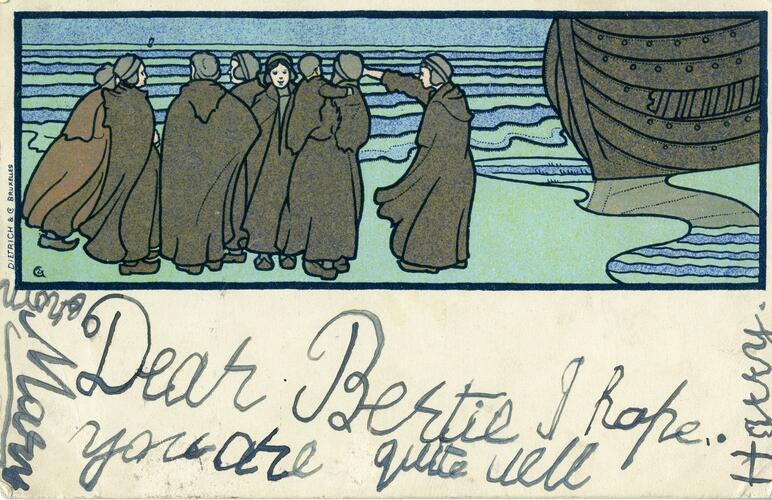 DIETRICH & Cº BRUXELLES
Dear Bertie I hope.
you are quite well
Harry.
from
Mary